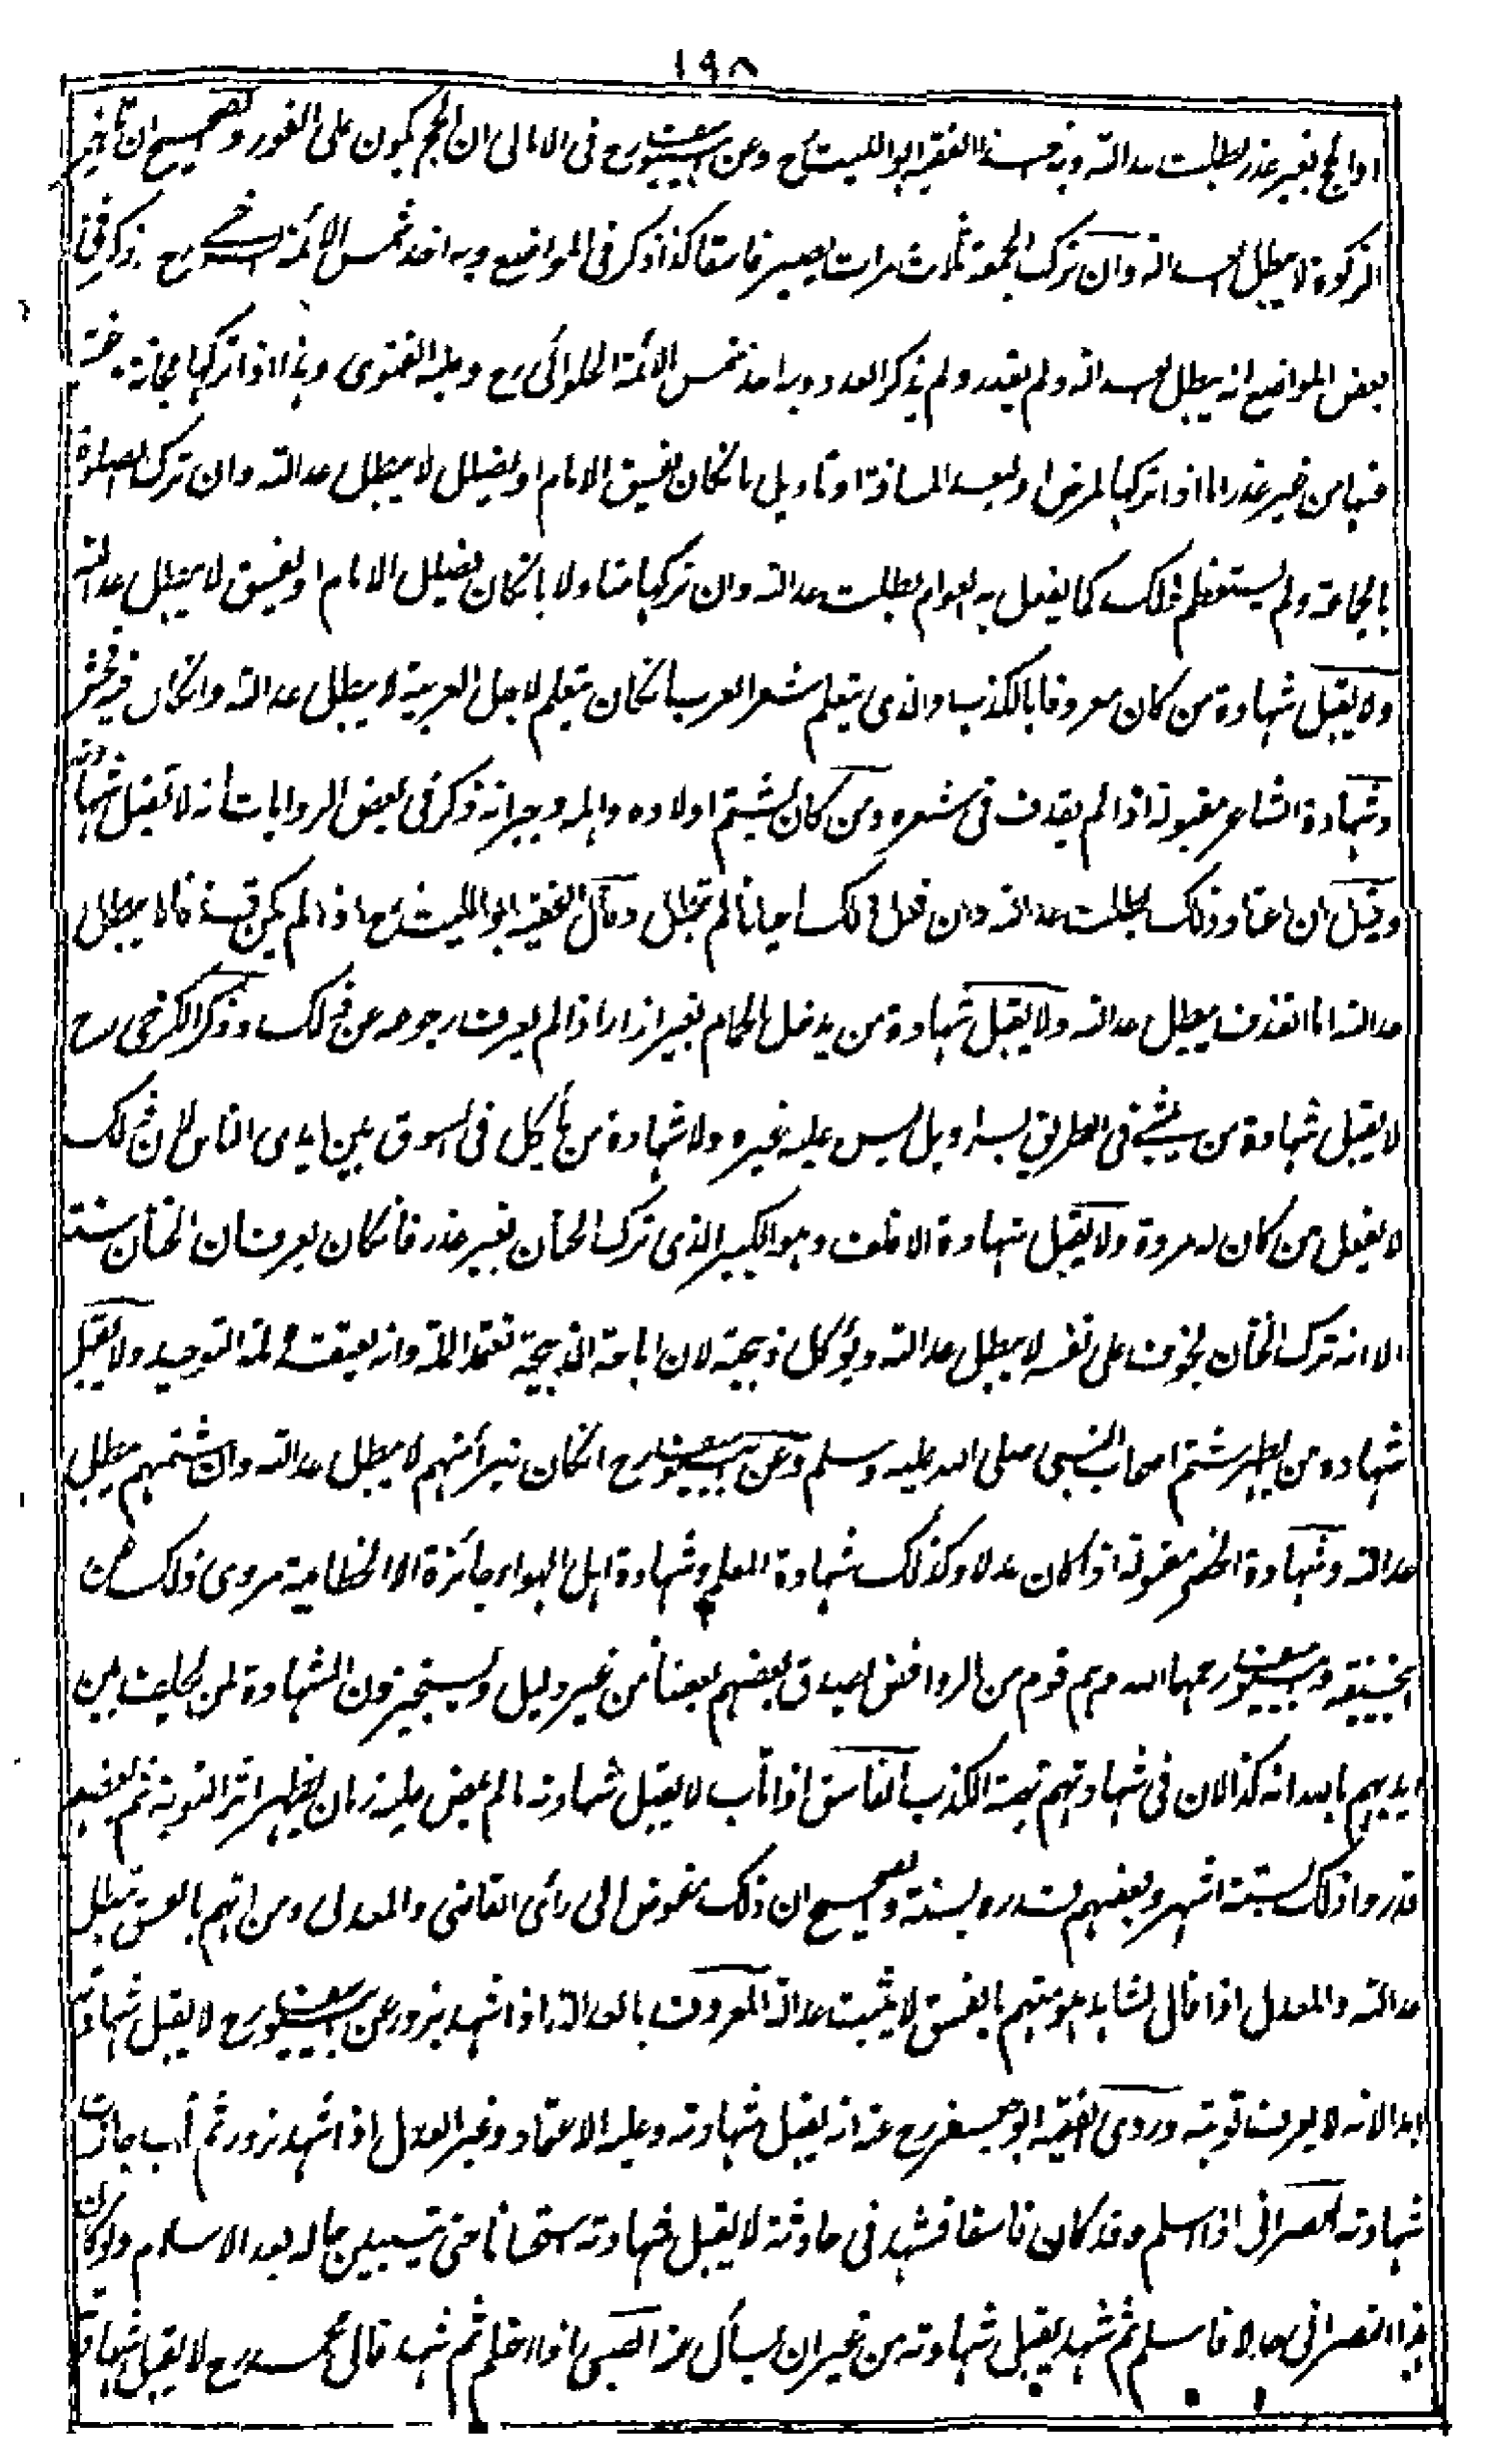 ١٩٨
او الحج بغير عذر بطلت عدالته وبه اخذ الفقيه ابو الليث رح وعن ابى يوسف رح فى الامالى ان الحج يكون على الفور والصحيح ان تاخير
الزكوة لا يبطل العدالة وان ترك الجمعة ثلاث مرات يصير فاسقا كذا ذكر فى المواضع وبه اخذ شمس الائمة السرخسى رح وذكر فى
بعض المواضع انه يبطل العدالة ولم يقدر ولم يذكر العدد وبه اخذ شمس الائمة الحلوائى رح وعليه الفتوى وهذا اذا تركها مجانة رغبة
عنها من غير عذر اما اذا تركها لمرض او لبعد المسافة او تاويل بانكان يفسق الامام او يضلل لا يبطل عدالته وان ترك الصلوة
بالجماعة ولم يستعظم ذلك كما يفعل به العوام بطلت عدالته وان تركها متاولا بانكان يضلل الامام او يفسق لا يبطل عدالته
ولا يقبل شهادة من كان معروفا بالكذب والذى يتعلم شعر العرب انكان يتعلم لاجل العربية لا يبطل عدالته وانكان فيه فحش
وشهادة الشاعر مقبولة اذا لم يقذف فى شعره ومن كان يشتم اولاده واهله وجيرانه ذكر فى بعض الروايات انه لا تقبل شهادته
وقيل ان اعتاد ذلك بطلت عدالته وان فعل ذلك احيانا لم تبطل وقال الفقيه ابو الليث رح اذا لم يكن قذفا لا يبطل
عدالته اما القذف يبطل عدالته ولا يقبل شهادة من يدخل الحمام بغير ازار اذا لم يعرف رجوعه عن ذلك وذكر الكرخى رح
لا يقبل شهادة من يمشى فى الطريق بسراويل ليس عليه غيره ولا شهادة من ياكل فى السوق بين ايدى الناس لان ذلك
لا يفعل من كان له مروة ولا يقبل شهادة الاقلف وهو الكبير الذى ترك الختان بغير عذر فانكان يعرف ان الختان سنة
الا انه ترك الختان لخوف على نفسه لا يبطل عدالته ويؤكل ذبيحته لان اباحة الذبيحة تعتمد الملة وانه يعتقد ملة التوحيد ولا يقبل
شهادة من يظهر شتم اصحاب النبى صلى الله عليه وسلم وعن ابى يوسف رح انكان تبرأ منهم لا يبطل عدالته وان شتمهم يبطل
عدالته وشهادة الخصى مقبولة اذا كان عدلا وكذلك شهادة المعلم وشهادة اهل الهواء جائزة الا الخطابية مروى ذلك عن
ابى حنيفة وابى يوسف رحمهما الله وهم قوم من الروافض يصدق بعضهم بعضا من غير دليل ويستجيزون الشهادة لمن يحلف بين
ايديهم بالله انه كذا لان فى شهادتهم تهمة الكذب الفاسق اذا تاب لا يقبل شهادته ما لم يمض عليه زمان يظهر اثر التوبة ثم بعضهم
قدروا ذلك بستة اشهر وبعضهم قدره بسنة والصحيح ان ذلك مفوض الى رأى القاضى والمعدل ومن اتهم بالفسق تبطل
عدالته والمعدل اذا قال لشاهد هو متهم بالفسق لا يثبت عدالته المعروف بالعدالة اذا شهد بزور عن ابى يوسف رح لا يقبل شهادته
ابدا لانه لا يعرف توبته وروى الفقيه ابو جعفر رح عنه انه يقبل شهادته وعليه الاعتماد وغير العدل اذا شهد بزور ثم تاب جازت
شهادته النصرانى اذا اسلم وقد كان فاسقا فشهد فى حادثة لا يقبل شهادته استحسانا حتى يتبين حاله بعد الاسلام ولو كان
هذا النصرانى عدلا فاسلم ثم شهد يقبل شهادته من غير ان يسأل عنه الصبى اذا احتلم ثم شهد قال محمد رح لا يقبل شهادته